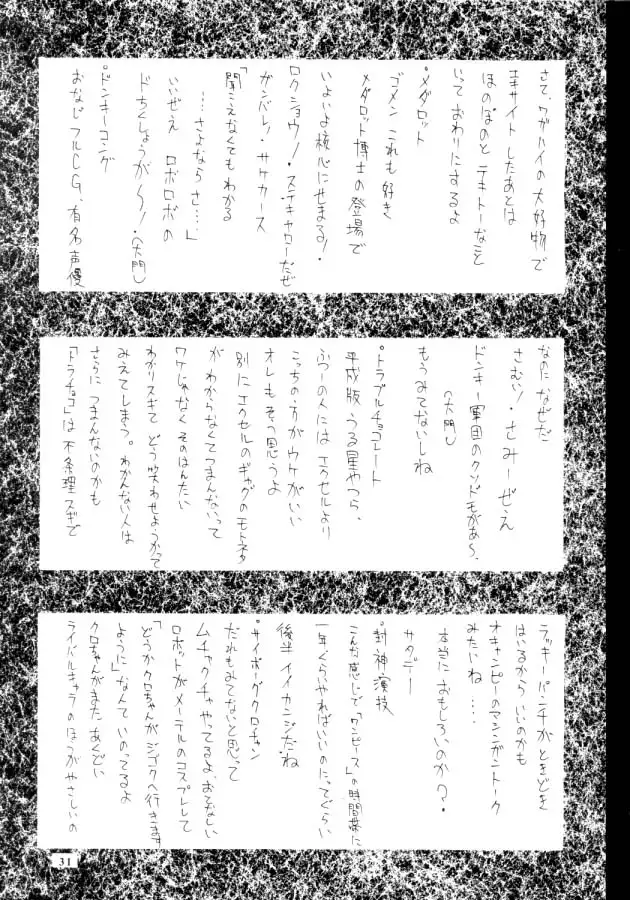 さて、ワガハイの大好物で
エキサイトしたあとは
ほのぼのとテキトーなこと
いっておわりにするよ
・メダロット
ゴメン これも好き
メダロット博士の登場で
いよいよ核心にせまる!・
ロクショウ!・ステキャローだぜ
ガンバレ!・サケカース
「聞こえなくてもわかる
…さよならさ…・」
いいぜえ ロボロボの
ドちくしょうが〜!・(大門)
・ドンキーコング
おなじフルCG、有名声優
なのになぜだ
さむい!・さみーぜえ
ドンキー軍団のクソドモがあ〜、
(大門)
もうみてないしね
・トラブルチョコレート
平成版うる星やつら、
ふつーの人にはエクセルより
こっちの方がウケがいい
オレもそう思うよ
別にエクセルのギャグのモトネタ
がわからなくてつまんないって
ワケじゃなくそのはんたい
わかりスギてどう笑わせようかって
みえてしまう。わかんない人は
さらにつまんないのかも
「トラチョコ」は不条理スギで
ラッキーパンチがときどき
はいるからいいのかも
オキャンピーのマシンガントーク
みたいね……
本当におもしろいのか?・
サタデー
・封神演技
こんな感じで「ワンピース」の時間帯に
一年ぐらいやればいいのにってぐらい
後半イイカンジだね
・サイボーグクロチャン
だれもみてないと思って
ムチャクチャやってるよ、おぞましい
ロボットがメーテルのコスプレして
「どうかクロちゃんがジゴクへ行きます
ように」なんていのってるよ
クロちゃんがまたあくどい
ライバルキャラのほうがやさしいの
31